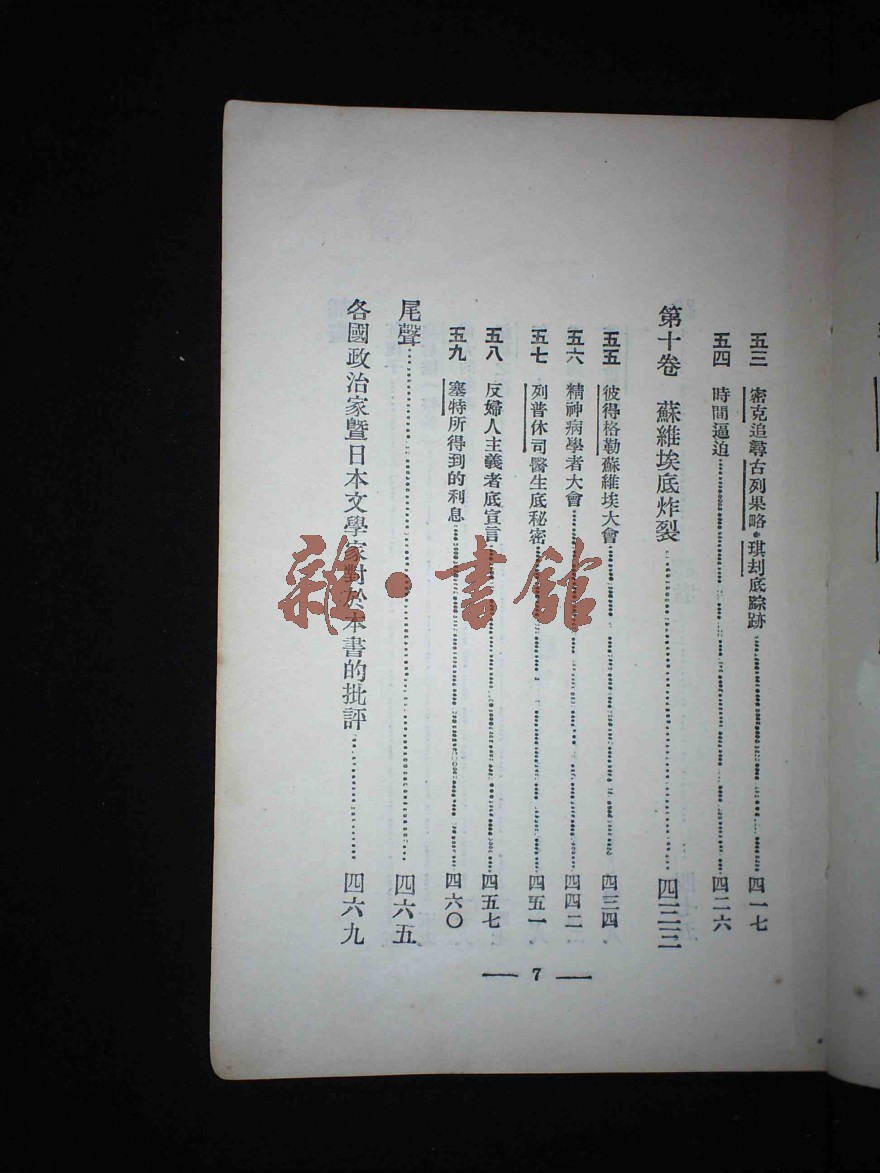 五三 密克追尋古列果略·琪刦底踪跡……四一七
五四 時間逼迫……四二六
第十卷 蘇維埃底炸裂……四三三
五五 彼得格勒蘇維埃大會……四三四
五六 精神病學者大會……四四二
五七 列普休司醫生底秘密……四五一
五八 反婦人主義者底宣言……四五七
五九 塞特所得到的利息……四六〇
尾聲……四六五
各國政治家暨日本文學家對於本書的批評……四六九
— 7 —
雜·書館